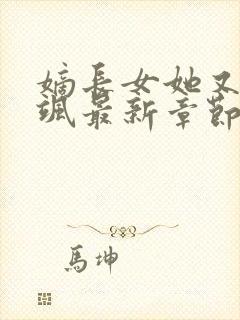 嫡长女她又
飒最新章节
馬坤